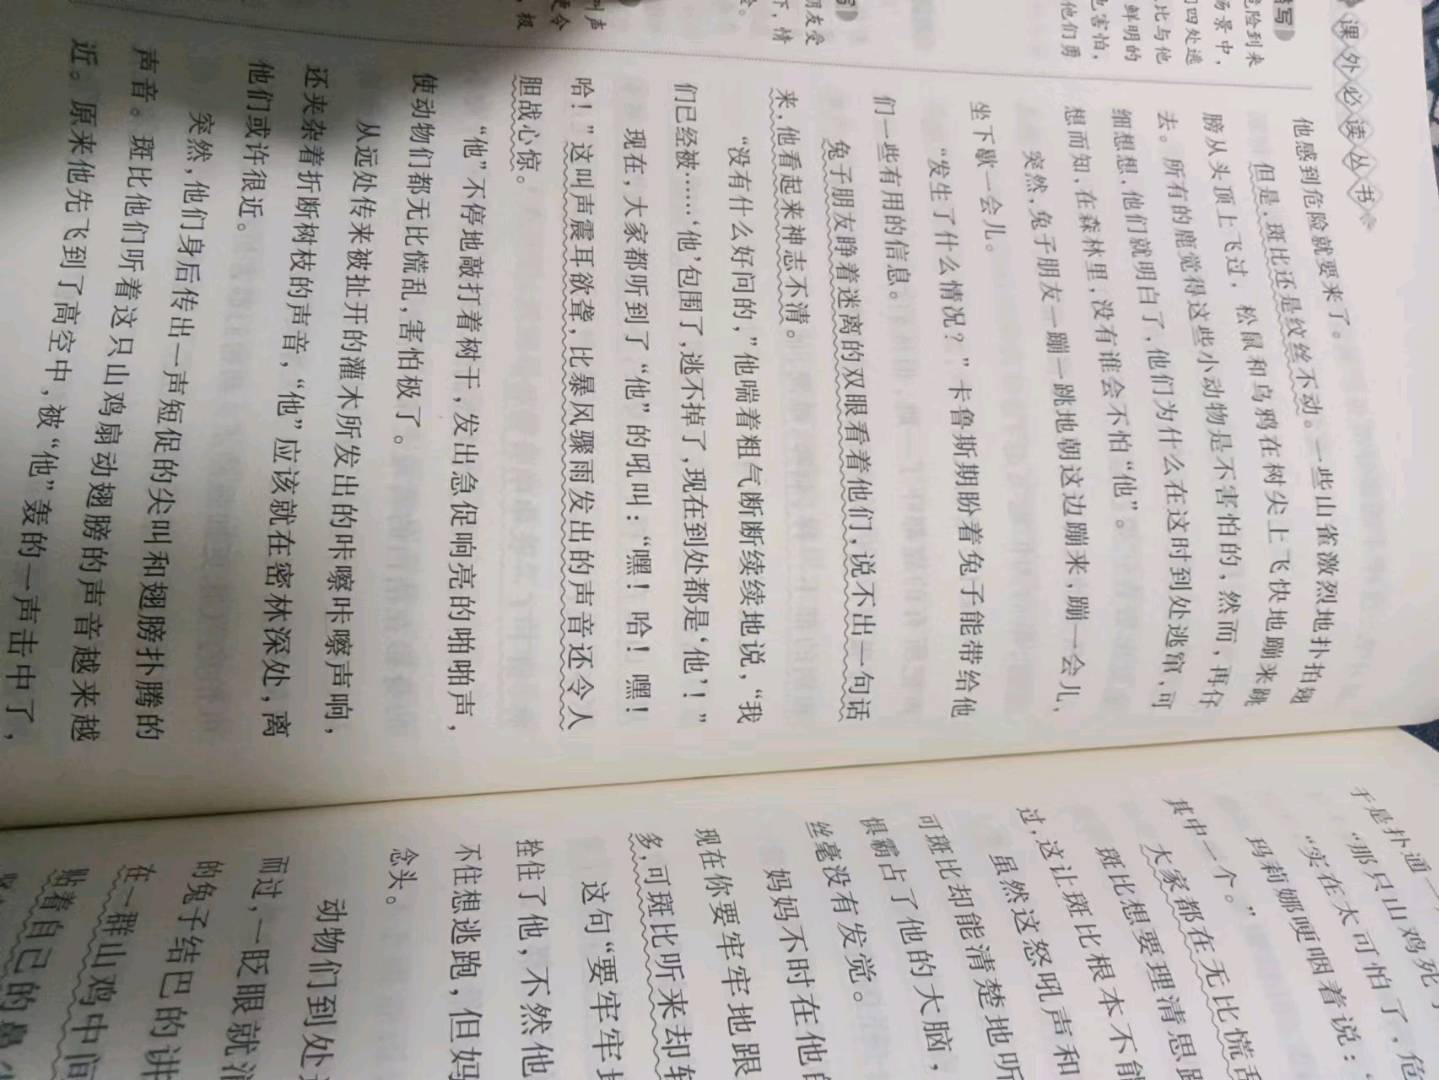 课外必读丛书
他感到危险就要来了。
但是,斑比还是纹丝不动。一些山雀激烈地扑拍翅
膀从头顶上飞过，松鼠和乌鸦在树尖上飞快地蹦来跳
去。所有的鹿觉得这些小动物是不害怕的,然而,再仔
细想想,他们就明白了,他们为什么在这时到处逃窜,可
想而知,在森林里,没有谁会不怕“他”。
突然,兔子朋友一蹦一跳地朝这边蹦来,蹦一会儿、
坐下歇一会儿。
“发生了什么情况？”卡鲁斯期盼着兔子能带给他
们一些有用的信息。
兔子朋友睁着迷离的双眼看着他们,说不出一句话
来,他看起来神志不清。
“没有什么好问的,”他喘着粗气断断续续地说，“我
们已经被……‘他’包围了,逃不掉了,现在到处都是‘他’！”
现在,大家都听到了“他”的吼叫：“嘿！哈！嘿！
哈！”这叫声震耳欲聋,比暴风骤雨发出的声音还令人
胆战心惊。
“他”不停地敲打着树干，发出急促响亮的啪啪声，
使动物们都无比慌乱,害怕极了。
从远处传来被扯开的灌木所发出的咔嚓咔嚓声响，
还夹杂着折断树枝的声音，“他”应该就在密林深处,离
他们或许很近。
突然,他们身后传出一声短促的尖叫和翅膀扑腾的
声音。斑比他们听着这只山鸡扇动翅膀的声音越来越
近。原来他先飞到了高空中，被“他”轰的一声击中了，
危险到来
场景中，
们四处逃
比与他
鲜明的
也害怕，
他们勇
朋友受
下，情
叫声
更令
，极
于是扑通一
“那只山鸡死
“实在太可怕了，危
玛莉娜哽咽着说：
其中一个。”
大家都在无比慌
斑比想要理清思
过,这让斑比根本不能
虽然这怒吼声和
可斑比却能清楚地听
惧霸占了他的大脑，
丝毫没有发觉。
妈妈不时在他
现在你要牢牢地跟
多,可斑比听来却
这句“要牢牢
拴住了他,不然他
不住想逃跑，但妈
念头。
动物们到处
而过,一眨眼就
的兔子结巴的讲
在一群山鸡中间
贴着自己的